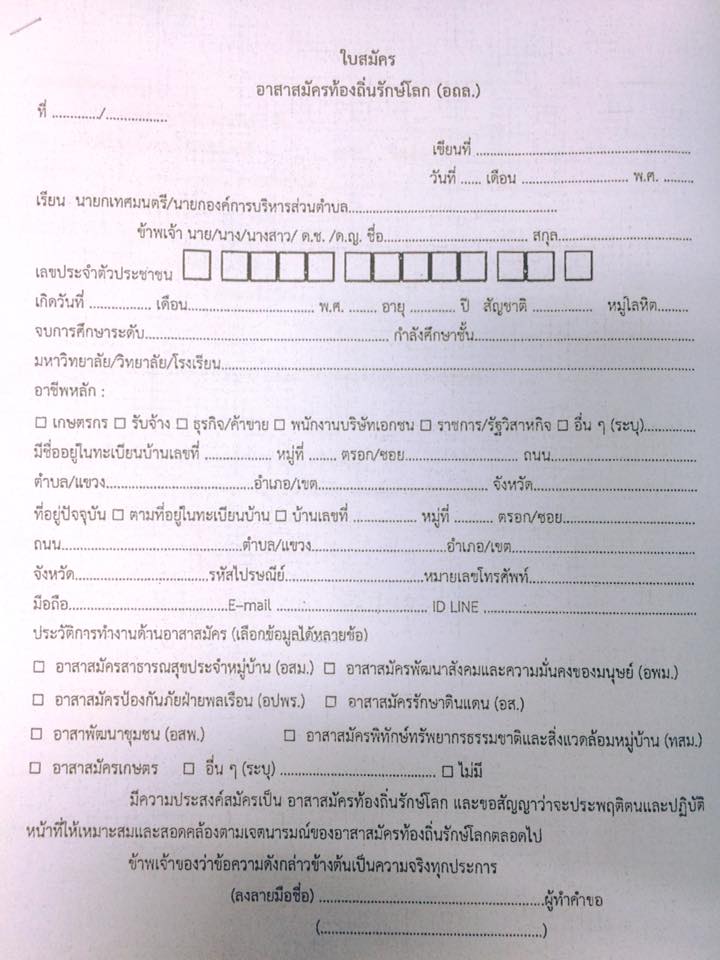 ใบสมัคร
อาสาสมัครท้องถิ่นรักษ์โลก (อถล.)
ที่ ............./................
เขียนที่ ........................................................
วันที่ ...... เดือน ............................ พ.ศ. ........
เรียน นายกเทศมนตรี/นายกองค์การบริหารส่วนตำบล......................................................
ข้าพเจ้า นาย/นาง/นางสาว/ ด.ช. /ด.ญ. ชื่อ...................................... สกุล...................................
เลขประจำตัวประชาชน □ □□□□ □□□□□ □□ □
เกิดวันที่ ................ เดือน................................. พ.ศ. ........ อายุ ............ ปี สัญชาติ ................ หมู่โลหิต........
จบการศึกษาระดับ............................................................... กำลังศึกษาชั้น.........................................................
มหาวิทยาลัย/วิทยาลัย/โรงเรียน............................................................................................................................
อาชีพหลัก :
□ เกษตรกร □ รับจ้าง □ ธุรกิจ/ค้าขาย □ พนักงานบริษัทเอกชน □ ราชการ/รัฐวิสาหกิจ □ อื่น ๆ (ระบุ).............
มีชื่ออยู่ในทะเบียนบ้านเลขที่ .................. หมู่ที่ ....... ตรอก/ซอย.............................. ถนน......................................
ตำบล/แขวง.......................................อำเภอ/เขต............................................ จังหวัด...........................................
ที่อยู่ปัจจุบัน □ ตามที่อยู่ในทะเบียนบ้าน □ บ้านเลขที่ ................. หมู่ที่ .......... ตรอก/ซอย..................................
ถนน...............................................ตำบล/แขวง...................................อำเภอ/เขต................................................
จังหวัด...................................รหัสไปรษณีย์.....................................หมายเลขโทรศัพท์...........................................
มือถือ..........................................E–mail ........................................ ID LINE ........................................................
ประวัติการทำงานด้านอาสาสมัคร (เลือกข้อมูลได้หลายข้อ)
□ อาสาสมัครสาธารณสุขประจำหมู่บ้าน (อสม.) □ อาสาสมัครพัฒนาสังคมและความมั่นคงของมนุษย์ (อพม.)
□ อาสาสมัครป้องกันภัยฝ่ายพลเรือน (อปพร.) □ อาสาสมัครรักษาดินแดน (อส.)
□ อาสาพัฒนาชุมชน (อสพ.) □ อาสาสมัครพิทักษ์ทรัพยากรธรรมชาติและสิ่งแวดล้อมหมู่บ้าน (ทสม.)
□ อาสาสมัครเกษตร □ อื่น ๆ (ระบุ) ......................................... □ ไม่มี
มีความประสงค์สมัครเป็น อาสาสมัครท้องถิ่นรักษ์โลก และขอสัญญาว่าจะประพฤติตนและปฏิบัติ
หน้าที่ให้เหมาะสมและสอดคล้องตามเจตนารมณ์ของอาสาสมัครท้องถิ่นรักษ์โลกตลอดไป
ข้าพเจ้าของว่าข้อความดังกล่าวข้างต้นเป็นความจริงทุกประการ
(ลงลายมือชื่อ) ...........................................................ผู้ทำคำขอ
(...........................................................)